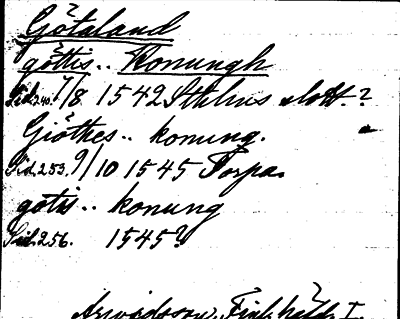 Götaland
göttis.. Konungh
Sid.240. 7/8 1542 Sthlms slott.?
Giöthes.. konung.
Sid.253. 9/10 1545 Torpa.
götis.. konung
Sid.256. 1545?
Arwidsson, Finl. häfd. I